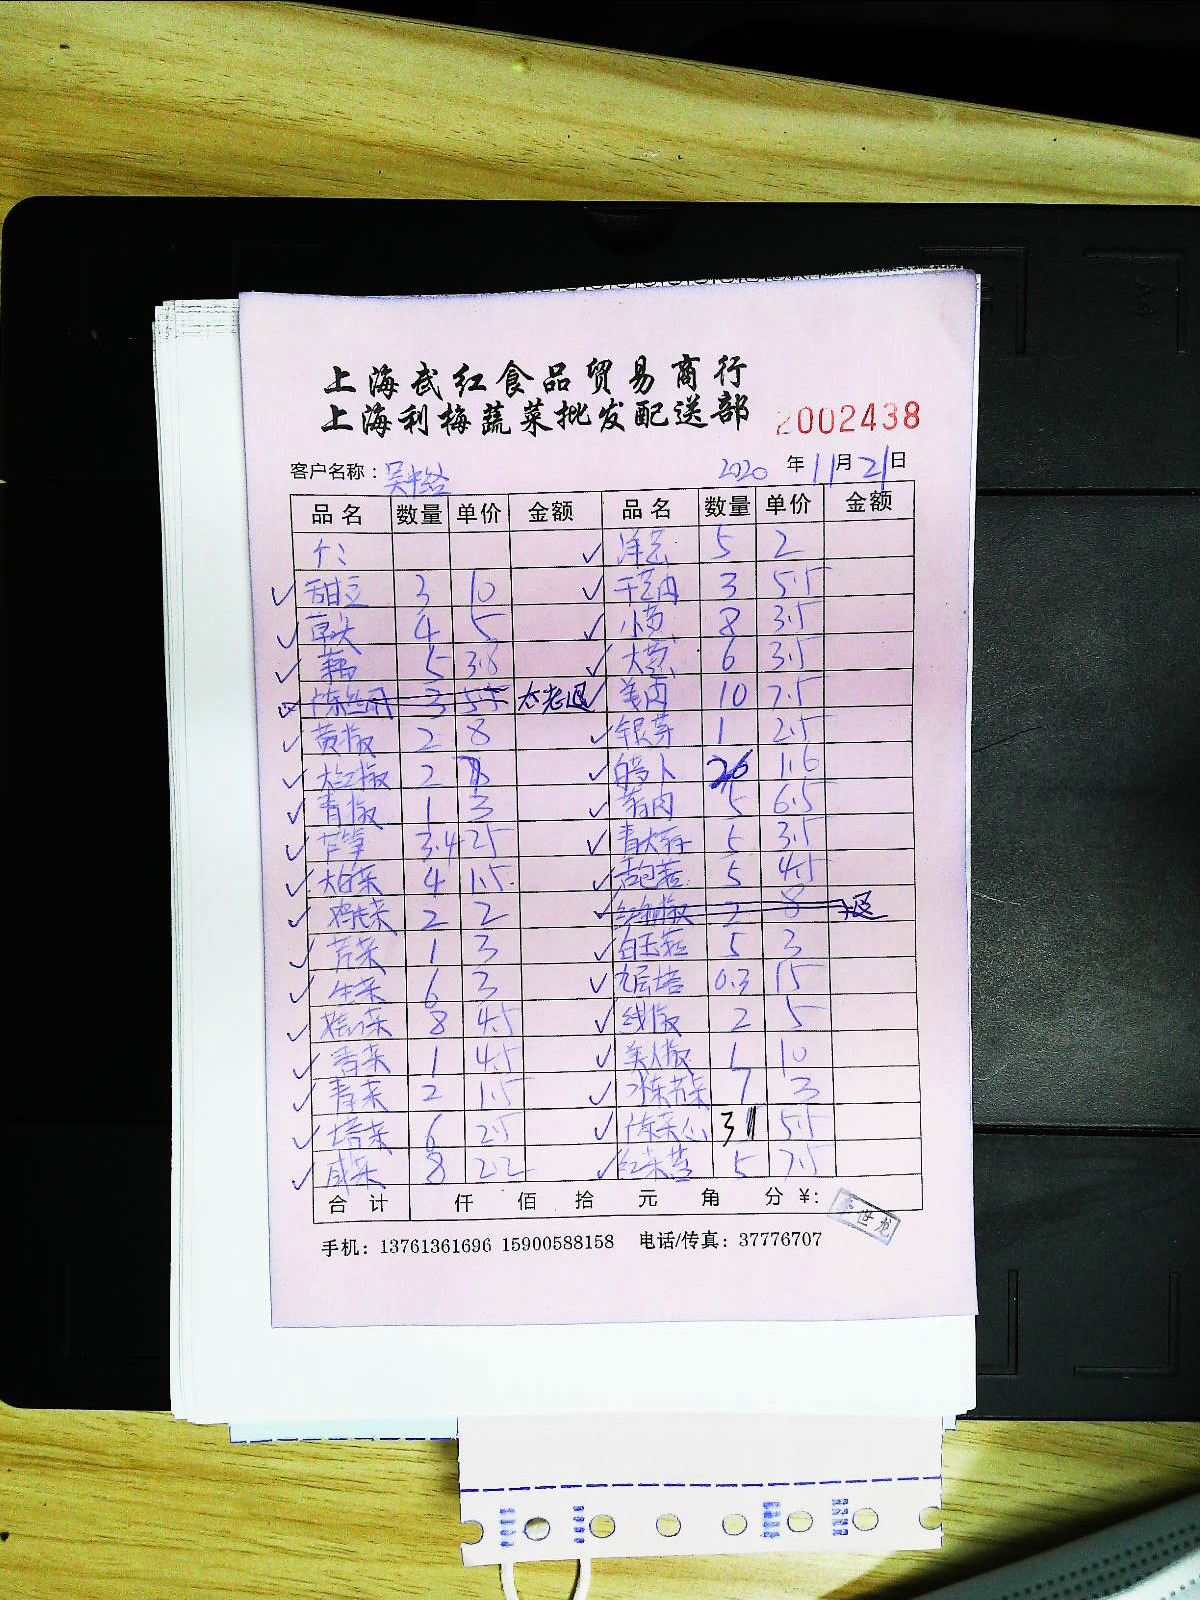 上海武红食品贸易商行
上海利梅蔬菜批发配送部 2002438
客户名称： 2020 年 11 月 21 日
品名 数量 单价 金额 品名 数量 单价 金额
✓ 洋芋 5 2
✓ 甜豆 3 10 ✓ 3 5.5
✓ 草头 4 5 ✓ 8 3.5
✓ 藕 5 3.8 ✓ 6 3.5
3 5.5 太老退 ✓ 10 7.5
✓ 黄椒 2 8 ✓ 银芽 1 2.5
✓ 大红椒 2 ✓ 白萝卜 26 1.6
✓ 青椒 1 3 ✓ 5 6.5
✓ 芦笋 3.4 25 ✓ 5 3.5
✓ 大白菜 4 1.5 ✓ 5 4.5
✓ 鸡毛菜 2 2 2 8 退
✓ 芹菜 1 3 ✓ 白玉菇 5 3
✓ 生菜 6 3 ✓ 九层塔 0.3 15
✓ 娃娃菜 8 4.5 ✓ 线椒 2 5
✓ 香菜 1 4.5 ✓ 美人椒 1 10
✓ 青菜 2 1.5 ✓ 7 3
✓ 塔菜 6 2.5 ✓ 广东菜心 5.5
✓ 咸菜 8 2.2 ✓ 红菜苔 5 7.5
合计 仟 佰 拾 元 角 分 ¥:
手机：13761361696 15900588158 电话/传真：37776707